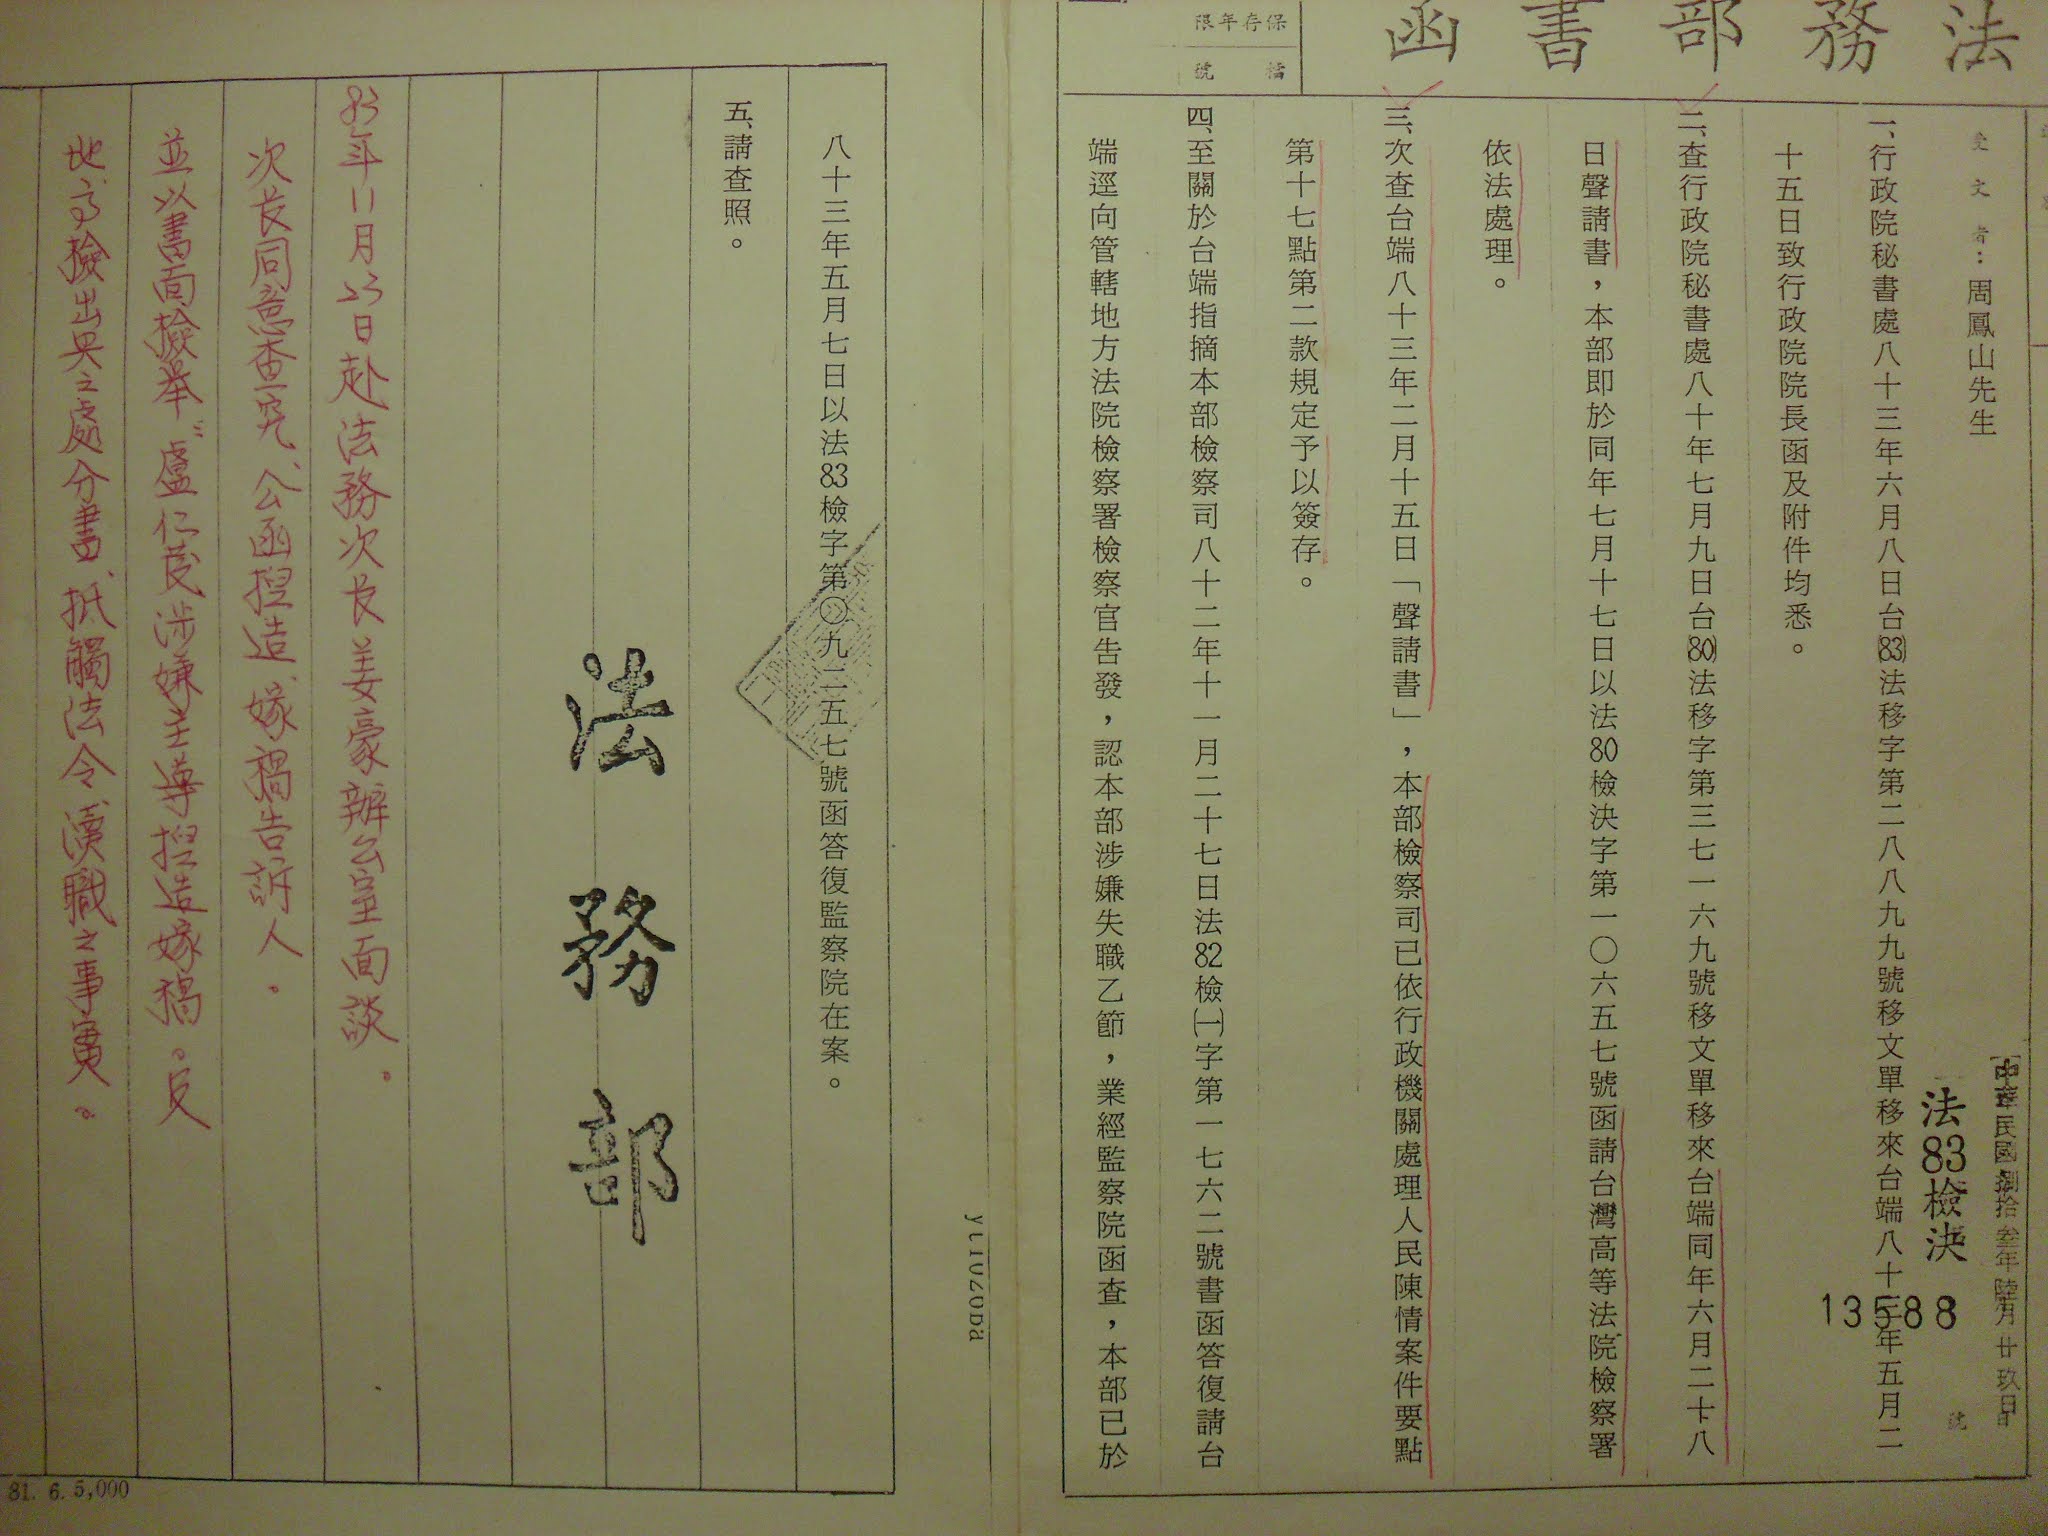 法務部書函
保存年限
檔號
受文者：周鳳山先生
中華民國捌拾叁年陸月廿玖日
法83檢決
13588
號
一、行政院秘書處八十三年六月八日台(83)法移字第二八八九九號移文單移來台端八十三年五月二
十五日致行政院院長函及附件均悉。
二、查行政院秘書處八十年七月九日台(80)法移字第三七一六九號移文單移來台端同年六月二十八
日聲請書，本部即於同年七月十七日以法80檢決字第一〇六五七號函請台灣高等法院檢察署
依法處理。
三、次查台端八十三年二月十五日「聲請書」，本部檢察司已依行政機關處理人民陳情案件要點
第十七點第二款規定予以簽存。
四、至關於台端指摘本部檢察司八十二年十一月二十七日法82檢㈠字第一七六二號書函答復請台
端逕向管轄地方法院檢察署檢察官告發，認本部涉嫌失職乙節，業經監察院函查，本部已於
八十三年五月七日以法83檢字第〇九二五七號函答復監察院在案。
五、請查照。
法務部
83年11月23日赴法務次長姜豪辦公室面談。
次長同意查究、公函捏造、嫁禍告訴人。
並以書面檢舉：盧仁發涉嫌主導捏造嫁禍。反
地、高檢出具之處分書、抵觸法令、瀆職之事實。
81. 6. 5,000